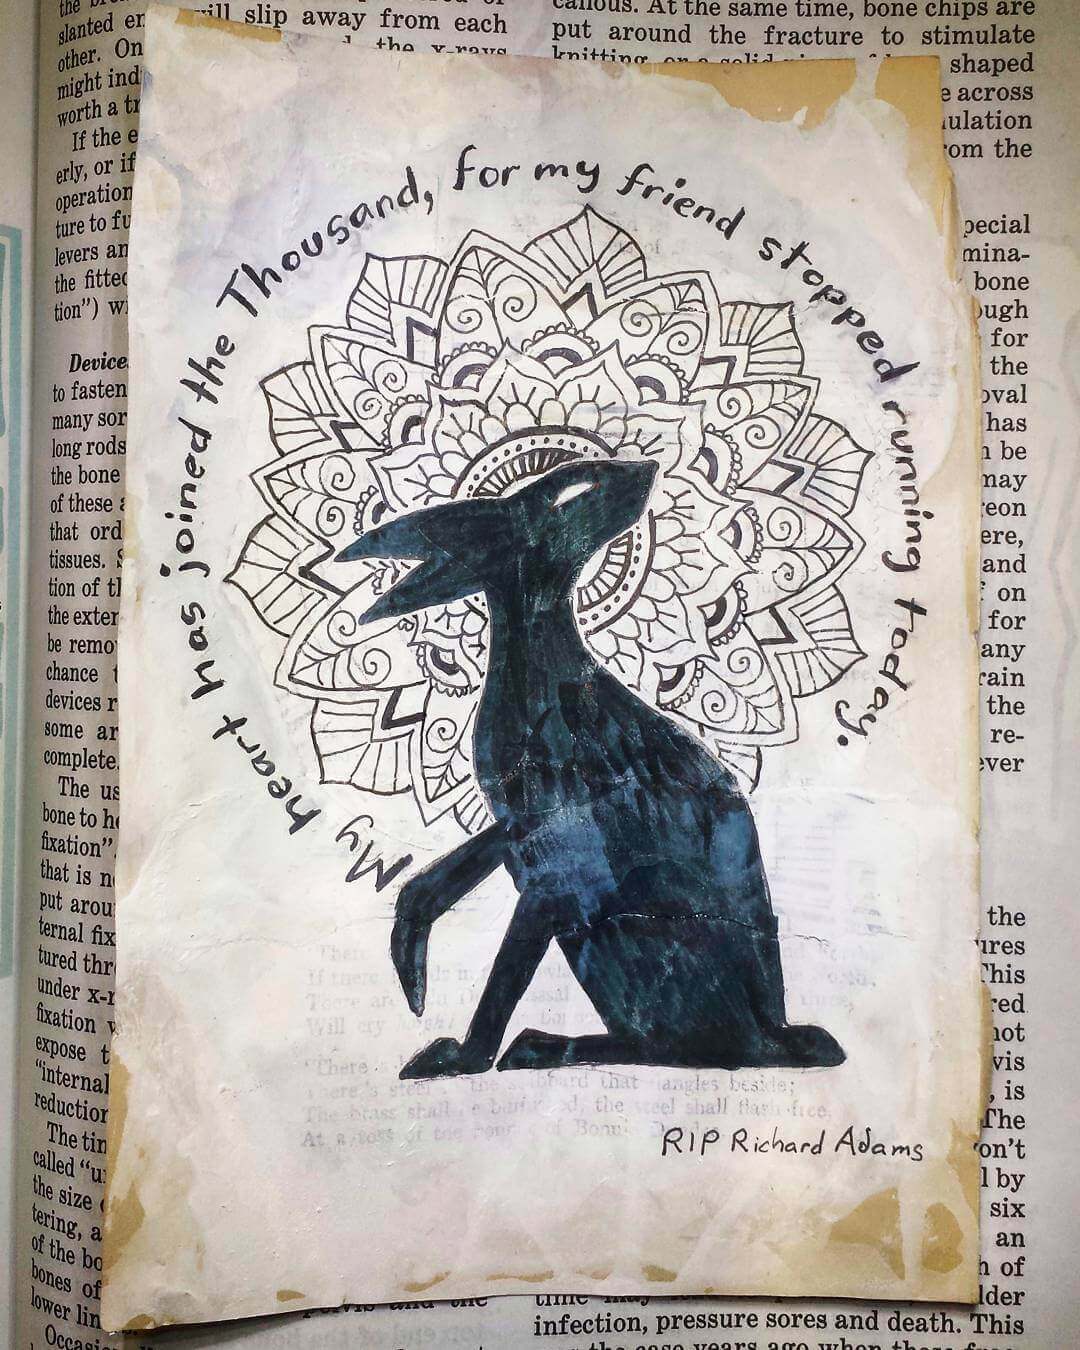 My heart has joined the Thousand, for my friend stopped running today.
RIP Richard Adams
the
slanted
will slip away from each
other. On
the x-rays
might ind
worth a tr
If the e
erly, or if
operation
ture to fu
levers an
the fitted
tion") w
Device
to fasten
many sor
long rods
the bone
of these
that ord
tissues.
tion of th
the exter
be remo
chance
devices r
some ar
complete.
The us
bone to h
fixation"
that is n
put arou
ternal fix
tured thr
under x-r
fixation
expose t
"internal
reduction
The tin
called "u
the size
tering, a
of the bo
bones of
lower lin
Occasi
callous. At the same time, bone chips are
put around the fracture to stimulate
shaped
e across
ulation
rom the
pecial
mina-
bone
ough
for
the
oval
has
n be
may
reon
ere,
and
on
for
any
rain
the
re-
ever
the
ures
This
red
not
vis
, is
The
on't
l by
six
an
h of
lder
infection, pressure sores and death. This
If there
There are
Will cry
"There
that dangles beside;
The brass shall be burnished, the steel shall flash free,
At a toss of the